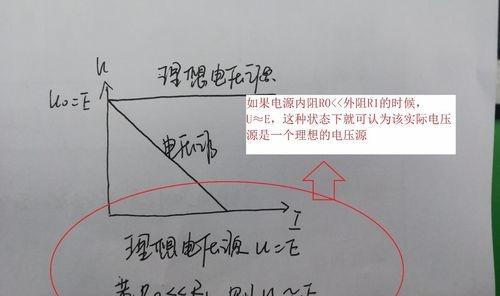 U
理想电压源
U0=E
如果电源内阻R0<<外阻R1的时候，
U≈E，这种状态下就可认为该实际电压
源是一个理想的电压源
电压源
I
理想电压源 U=E
若R0<<R1 则U≈E